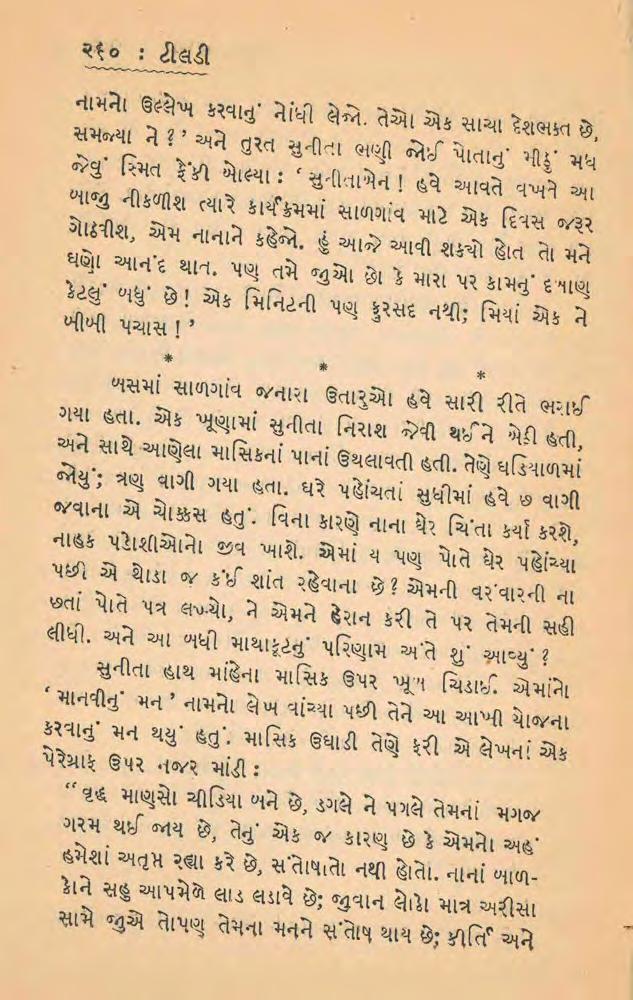 ૨૬૦ : ટીલડી
નામનો ઉલ્લેખ કરવાનું નોંધી લેજો. તેઓ એક સાચા દેશભક્ત છે,
સમજ્યા ને ?’ અને તુરત સુનીતા ભણી જોઈ પોતાનું મીઠું મધ
જેવું સ્મિત ફેંકી બોલ્યા : ‘ સુનીતાબેન ! હવે આવતે વખતે આ
બાજુ નીકળીશ ત્યારે કાર્યક્રમમાં સાળગાંવ માટે એક દિવસ જરૂર
ગોઠવીશ, એમ નાનાને કહેજો. હું આજે આવી શક્યો હોત તો મને
ઘણો આનંદ થાત. પણ તમે જુઓ છો કે મારા પર કામનું દબાણ
કેટલું બધું છે ! એક મિનિટની પણ ફુરસદ નથી; મિયાં એક ને
બીબી પચાસ ! ’
* * *
બસમાં સાળગાંવ જનારા ઉતારુઓ હવે સારી રીતે ભરાઈ
ગયા હતા. એક ખૂણામાં સુનીતા નિરાશ જેવી થઈને બેઠી હતી,
અને સાથે આણેલા માસિકનાં પાનાં ઉથલાવતી હતી. તેણે ઘડિયાળમાં
જોયું; ત્રણ વાગી ગયા હતા. ઘરે પહોંચતાં સુધીમાં હવે છ વાગી
જવાના એ ચોક્કસ હતું. વિના કારણે નાના ઘેર ચિંતા કર્યા કરશે,
નાહક પડોશીઓનો જીવ ખાશે. એમાં ય પણ પોતે ઘેર પહોંચ્યા
પછી એ થોડા જ કંઈ શાંત રહેવાના છે ? એમની વરંવારની ના
છતાં પોતે પત્ર લખ્યો, ને એમને હેરાન કરી તે પર તેમની સહી
લીધી. અને આ બધી માથાકૂટનું પરિણામ અંતે શું આવ્યું ?
સુનીતા હાથ માંહેના માસિક ઉપર ખૂબ ચિડાઈ. એમાંનો
‘ માનવીનું મન ’ નામનો લેખ વાંચ્યા પછી તેને આ આખી યોજના
કરવાનું મન થયું હતું. માસિક ઉઘાડી તેણે ફરી એ લેખનાં એક
પેરેગ્રાફ ઉપર નજર માંડી :
“ વૃદ્ધ માણસો ચીડિયા બને છે, ડગલે ને પગલે તેમનાં મગજ
ગરમ થઈ જાય છે, તેનું એક જ કારણ છે કે એમનો અહં
હમેશાં અતૃપ્ત રહ્યા કરે છે, સંતોષાતો નથી હોતો. નાનાં બાળ-
કોને સહુ આપમેળે લાડ લડાવે છે; જુવાન લોકો માત્ર અરીસા
સામે જુએ તોપણ તેમના મનને સંતોષ થાય છે; કીર્તિ અને